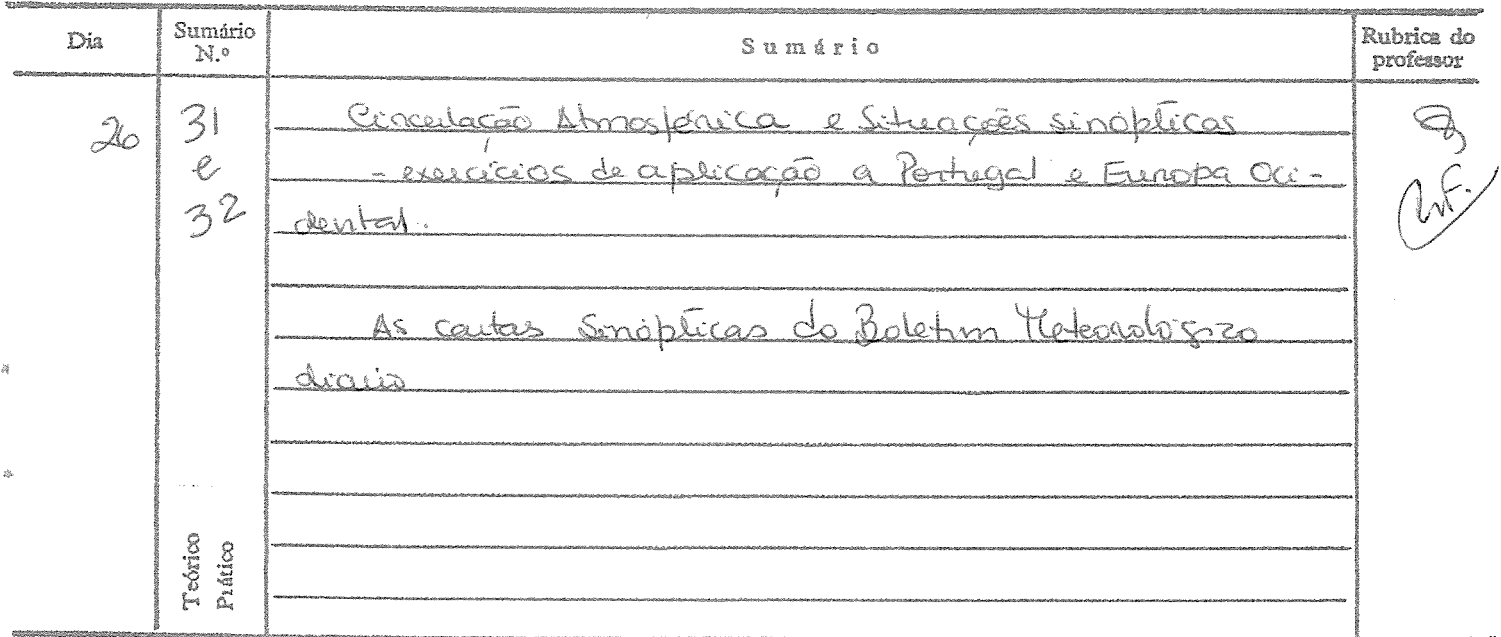 Dia
Sumário
N.º
Sumário
Rubrica do
professor
26
31
e
32
Circulação Atmosférica e Situações sinópticas
- exercícios de aplicação a Portugal e Europa Oci-
dental.
As cartas Sinópticas do Boletim Meteorológico
diário
Teórico
Prático